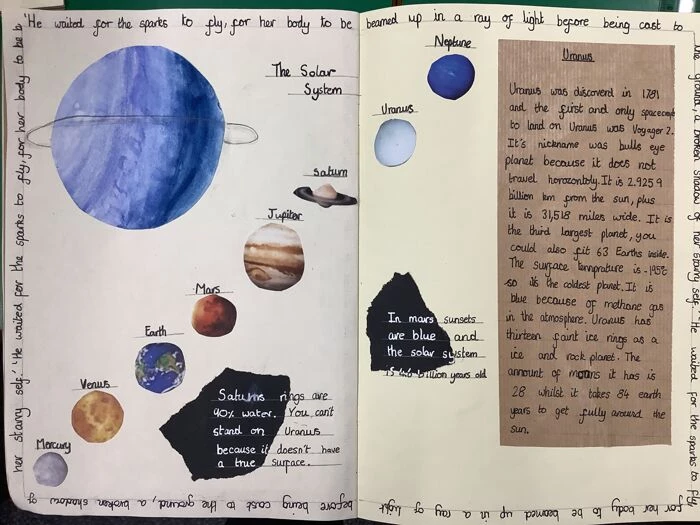 'He waited for the sparks to fly, for her body to be beamed up in a ray of light before being cast to
the ground, a broken shadow of her starry self.' 'He waited for the sparks to fly,
for her body to be beamed up in a ray of light
before being cast to the ground, a broken shadow of
her starry self.' He waited for the sparks to fly, for her body to be b
The Solar
System
Saturn
Jupiter
Mars
Earth
Venus
Mercury
Saturns rings are
90% water. You can't
stand on Uranus
because it doesn't have
a true surface.
Neptune
Uranus
In mars sunsets
are blue and
the solar system
is 4.6 billion years old
Uranus
Uranus was discoverd in 1781
and the first and only spacecraft
to land on Uranus was Voyager 2.
It's nickname was bulls eye
planet because it does not
travel horozontoly. It is 2.9259
billion km from the sun, plus
it is 31,518 miles wide. It is
the third largest planet, you
could also fit 63 Earths inside.
The surface temprature is -195°C
so it's the coldest planet. It is
blue because of methane gas
in the atmosphere. Uranus has
thirteen faint ice rings as a
ice and rock planet. The
amount of moons it has is
28 whilst it takes 84 earth
years to get fully around the
sun.